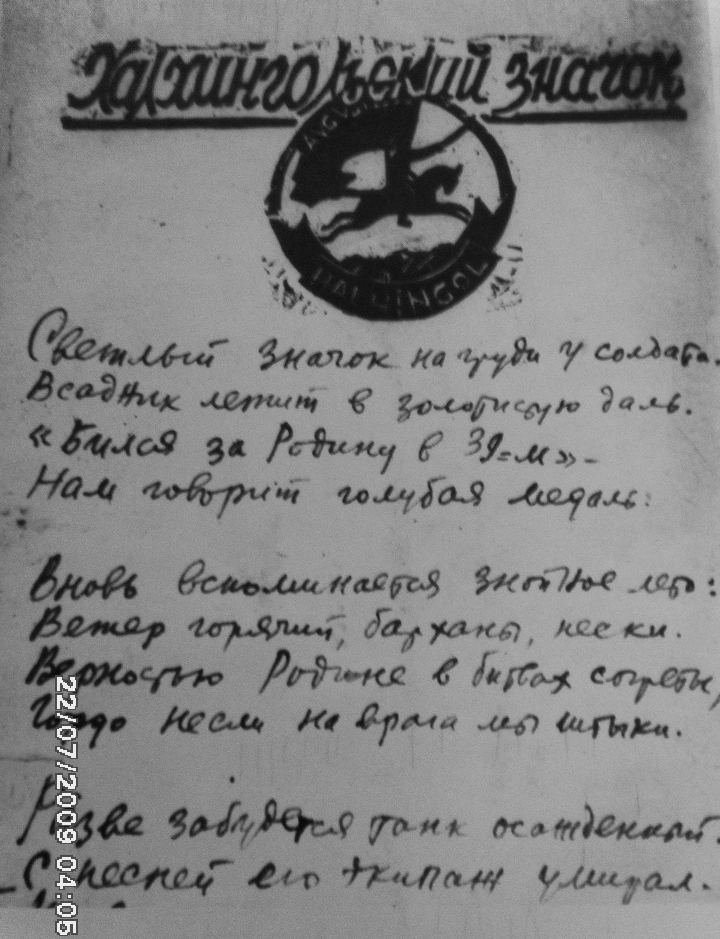 Халхингольский значок
AUGUST
HALHINGOL
Светлый значок на груди у солдата.
Всадник летит в золотистую даль.
«Бился за Родину в 39=м»-
Нам говорит голубая медаль:
Вновь вспоминается знойное лето:
Ветер горячий, барханы, пески.
Верностью Родине в битвах согреты,
Гордо несли на врага мы штыки.
Разве забудется танк осажденный.
С песней его экипаж умирал.
22/07/2009 04:05